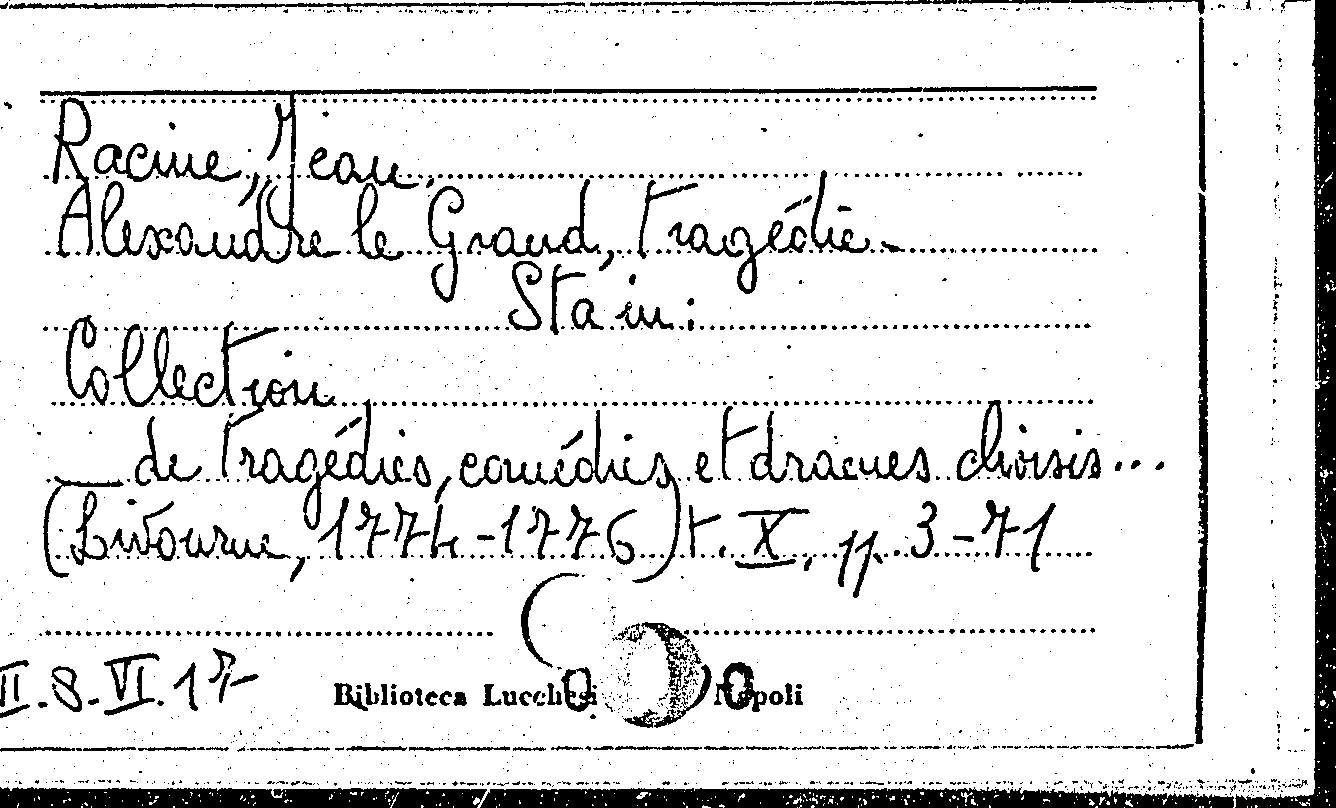 Racine, Jean.
Alexandre le Grand, tragédie.
Sta in:
Collection
__ de tragédies, comédies et drames choisis...
(Livourne, 1774-1776) t. X, pp. 3-71
II.8.VI.17
Biblioteca Napoli